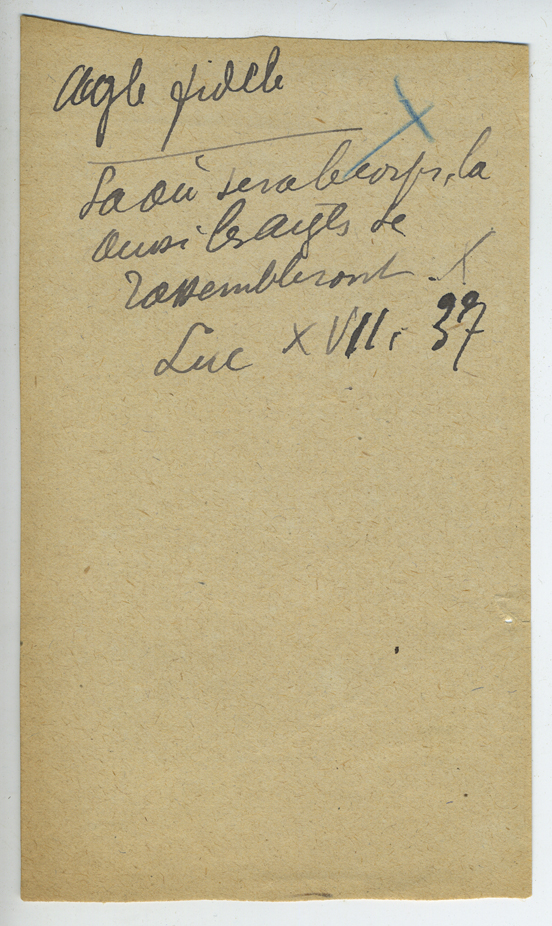 Aigle fidele
La où sera le corps, la
aussi les aigles se
rassembleront.
Luc XVII. 37